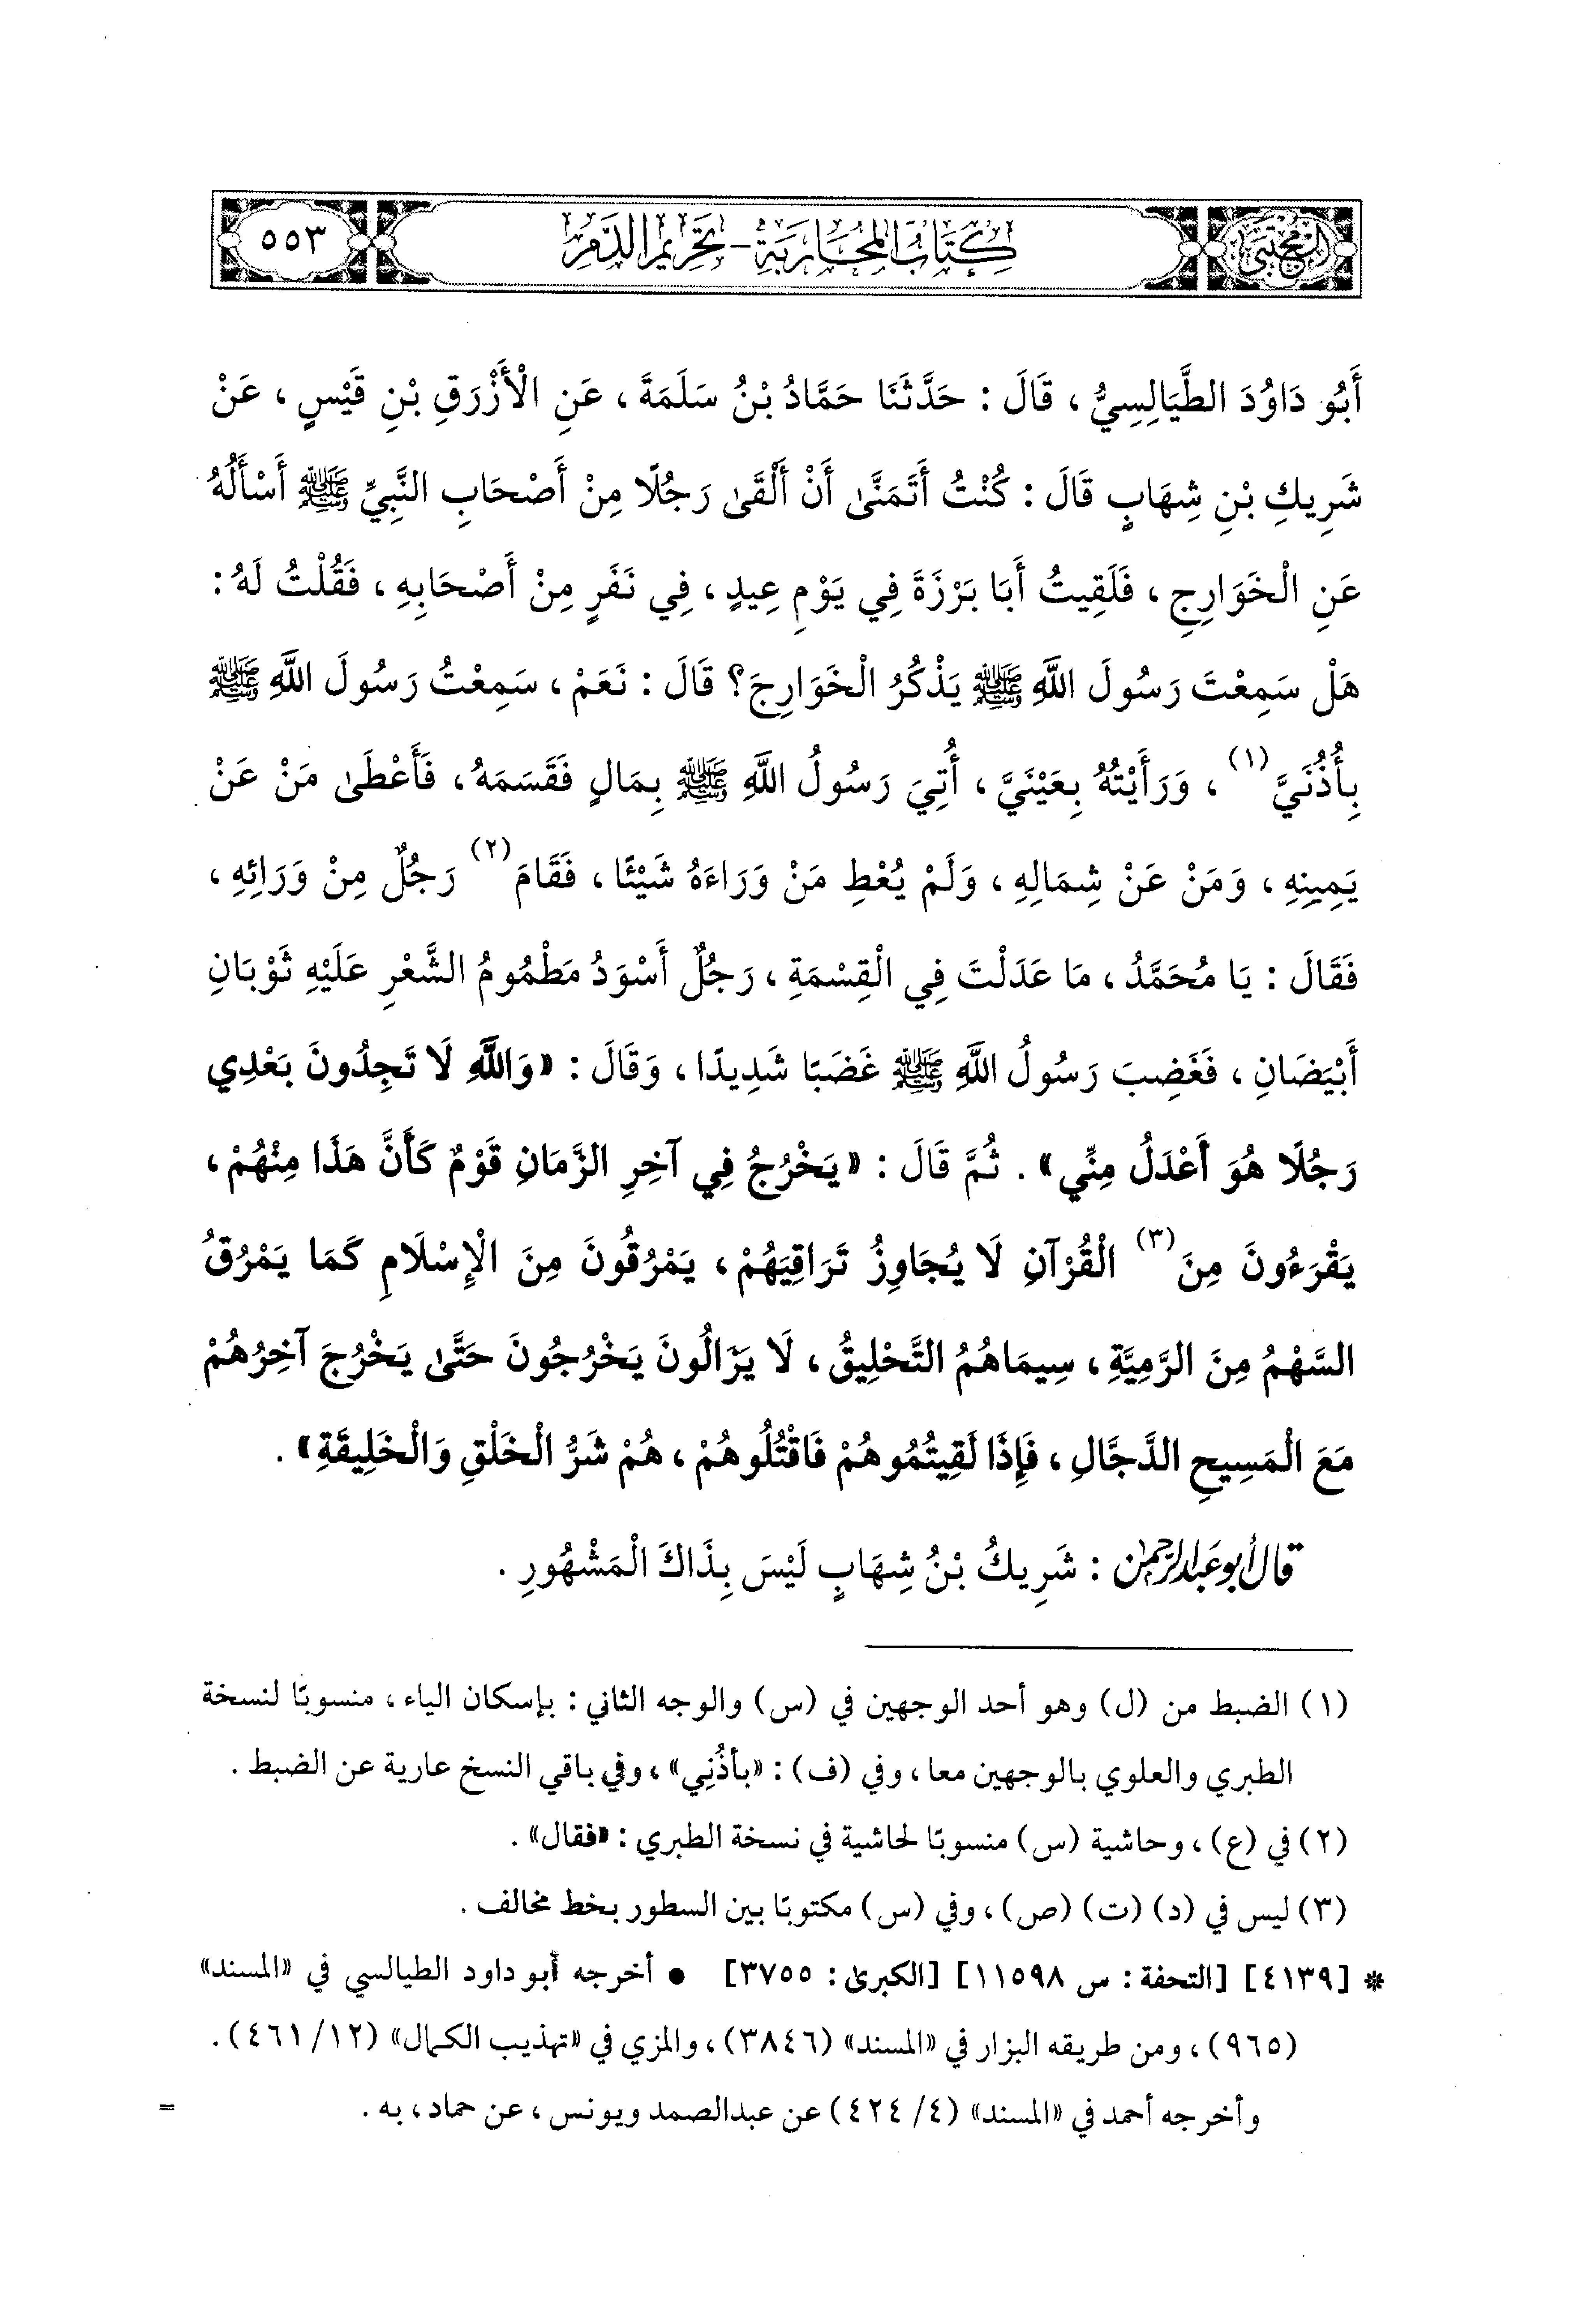 المجتبى
كِتَابُ الْمُحَارَبَةِ - تَحْرِيمُ الدَّمِ
٥٥٣
أَبُو دَاوُدَ الطَّيَالِسِيُّ ، قَالَ : حَدَّثَنَا حَمَّادُ بْنُ سَلَمَةَ ، عَنِ الْأَزْرَقِ بْنِ قَيْسٍ ، عَنْ
شَرِيكِ بْنِ شِهَابٍ قَالَ : كُنْتُ أَتَمَنَّى أَنْ أَلْقَى رَجُلًا مِنْ أَصْحَابِ النَّبِيِّ ﷺ أَسْأَلُهُ
عَنِ الْخَوَارِجِ ، فَلَقِيتُ أَبَا بَرْزَةَ فِي يَوْمِ عِيدٍ ، فِي نَفَرٍ مِنْ أَصْحَابِهِ ، فَقُلْتُ لَهُ :
هَلْ سَمِعْتَ رَسُولَ اللَّهِ ﷺ يَذْكُرُ الْخَوَارِجَ؟ قَالَ : نَعَمْ ، سَمِعْتُ رَسُولَ اللَّهِ ﷺ
بِأُذُنَيَّ (١) ، وَرَأَيْتُهُ بِعَيْنَيَّ ، أُتِيَ رَسُولُ اللَّهِ ﷺ بِمَالٍ فَقَسَمَهُ ، فَأَعْطَى مَنْ عَنْ
يَمِينِهِ ، وَمَنْ عَنْ شِمَالِهِ ، وَلَمْ يُعْطِ مَنْ وَرَاءَهُ شَيْئًا ، فَقَامَ (٢) رَجُلٌ مِنْ وَرَائِهِ ،
فَقَالَ : يَا مُحَمَّدُ ، مَا عَدَلْتَ فِي الْقِسْمَةِ ، رَجُلٌ أَسْوَدُ مَطْمُومُ الشَّعْرِ عَلَيْهِ ثَوْبَانِ
أَبْيَضَانِ ، فَغَضِبَ رَسُولُ اللَّهِ ﷺ غَضَبًا شَدِيدًا ، وَقَالَ : «وَاللَّهِ لَا تَجِدُونَ بَعْدِي
رَجُلًا هُوَ أَعْدَلُ مِنِّي» . ثُمَّ قَالَ : «يَخْرُجُ فِي آخِرِ الزَّمَانِ قَوْمٌ كَأَنَّ هَذَا مِنْهُمْ ،
يَقْرَءُونَ مِنَ (٣) الْقُرْآنِ لَا يُجَاوِزُ تَرَاقِيَهُمْ ، يَمْرُقُونَ مِنَ الْإِسْلَامِ كَمَا يَمْرُقُ
السَّهْمُ مِنَ الرَّمِيَّةِ ، سِيمَاهُمُ التَّحْلِيقُ ، لَا يَزَالُونَ يَخْرُجُونَ حَتَّى يَخْرُجَ آخِرُهُمْ
مَعَ الْمَسِيحِ الدَّجَّالِ ، فَإِذَا لَقِيتُمُوهُمْ فَاقْتُلُوهُمْ ، هُمْ شَرُّ الْخَلْقِ وَالْخَلِيقَةِ» .
قال أبو عبد الرحمن : شَرِيكُ بْنُ شِهَابٍ لَيْسَ بِذَاكَ الْمَشْهُورِ .
(١) الضبط من (ل) وهو أحد الوجهين في (س) والوجه الثاني : بإسكان الياء ، منسوبًا لنسخة
الطبري والعلوي بالوجهين معا ، وفي (ف) : «بأذُنِي» ، وفي باقي النسخ عارية عن الضبط .
(٢) في (ع) ، وحاشية (س) منسوبًا لحاشية في نسخة الطبري : «فقال» .
(٣) ليس في (د) (ت) (ص) ، وفي (س) مكتوبًا بين السطور بخط مخالف .
* [٤١٣٩] [التحفة : س ١١٥٩٨] [الكبرى : ٣٧٥٥] • أخرجه أبو داود الطيالسي في «المسند»
(٩٦٥) ، ومن طريقه البزار في «المسند» (٣٨٤٦) ، والمزي في «تهذيب الكمال» (١٢/ ٤٦١) .
وأخرجه أحمد في «المسند» (٤/ ٤٢٤) عن عبدالصمد ويونس ، عن حماد ، به .
=